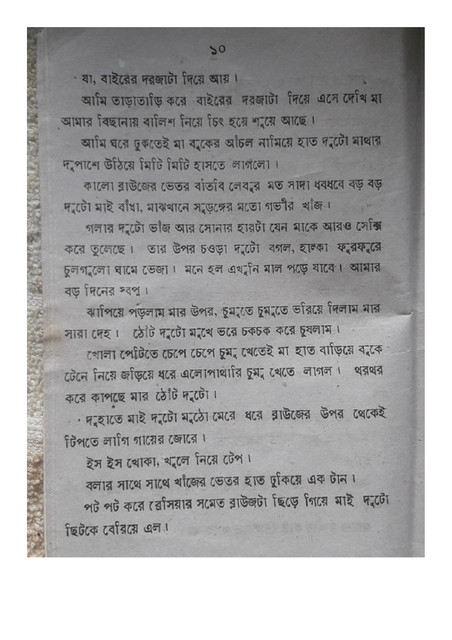 ১০
যা, বাইরের দরজাটা দিয়ে আয়।
আমি তাড়াতাড়ি করে বাইরের দরজাটা দিয়ে এসে দেখি মা
আমার বিছানায় বালিশ নিয়ে চিৎ হয়ে শুয়ে আছে।
আমি ঘরে ঢুকতেই মা বুকের আঁচল নামিয়ে হাত দুটো মাথার
দুপাশে উঠিয়ে মিটি মিটি হাসতে লাগলো।
কালো ব্লাউজের ভেতর বাতাবি লেবুর মত সাদা ধবধবে বড় বড়
দুটো মাই বাঁধা, মাঝখানে সুড়ঙ্গের মতো গভীর খাঁজ।
গলার দুটো ভাঁজ আর সোনার হারটা যেন মাকে আরও সেক্সি
করে তুলেছে। তার উপর চওড়া দুটো বগল, হাল্কা ফুরফুরে
চুলগুলো ঘামে ভেজা। মনে হল এখুনি মাল পড়ে যাবে। আমার
বড় দিনের স্বপ্ন।
ঝাপিয়ে পড়লাম মার উপর, চুমুতে চুমুতে ভরিয়ে দিলাম মার
সারা দেহ। ঠোঁট দুটো মুখে ভরে চকচক করে চুষলাম।
খোলা পেটিতে চেপে চেপে চুমু খেতেই মা হাত বাড়িয়ে বুকে
টেনে নিয়ে জড়িয়ে ধরে এলোপাথারি চুমু খেতে লাগল। থরথর
করে কাপছে মার ঠোঁট দুটো।
দুহাতে মাই দুটো মুঠো মেরে ধরে ব্লাউজের উপর থেকেই
টিপতে লাগি গায়ের জোরে।
ইস ইস খোকা, খুলে নিয়ে টেপ।
বলার সাথে সাথে খাঁজের ভেতর হাত ঢুকিয়ে এক টান।
পট পট করে ব্রেসিয়ার সমেত ব্লাউজটা ছিঁড়ে গিয়ে মাই দুটো
ছিটকে বেরিয়ে এল।